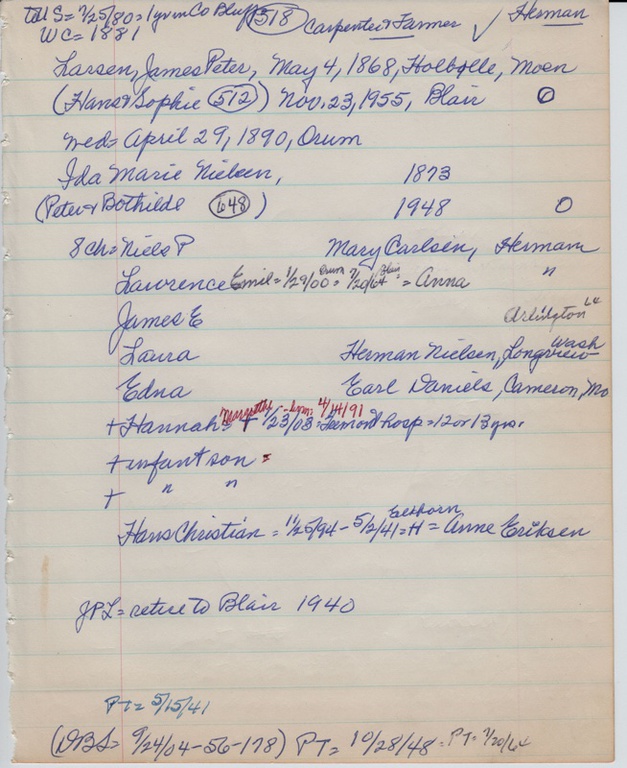 to US = 7/25/80 = 1 yr in Co Bluff (518) Carpenter & Farmer ✓ Herman
WC = 1881
Larsen, James Peter, May 4, 1868, Holbolle, Moen
(Hans & Sophie (512)) Nov. 23, 1955, Blair O
wed = April 29, 1890, Orum
Ida Marie Nielsen, 1873
(Peter & Bothilde (648)) 1948 O
8 ch = Niels P Mary Carlsen, Hermann
Lawrence Emil = 1/29/00 = Orum 7/20/64 Blair = Anna "
James E Arlington
Laura Herman Nielsen, Longview Wash
Edna Earl Daniels, Cameron, Mo
+ Hannah = Margretha - born 4/14/91 + 1/23/03 = hosp = 12 or 13 yrs.
+ infant son =
+ " "
Hans Christian = 11/25/94 - 5/2/41 = Elkhorn = H = Anne Eriksen
JPL = retire to Blair 1940
PT = 5/15/41
(DBS = 9/24/04 - 56 - 178) PT = 10/28/48 = PT = 7/20/64